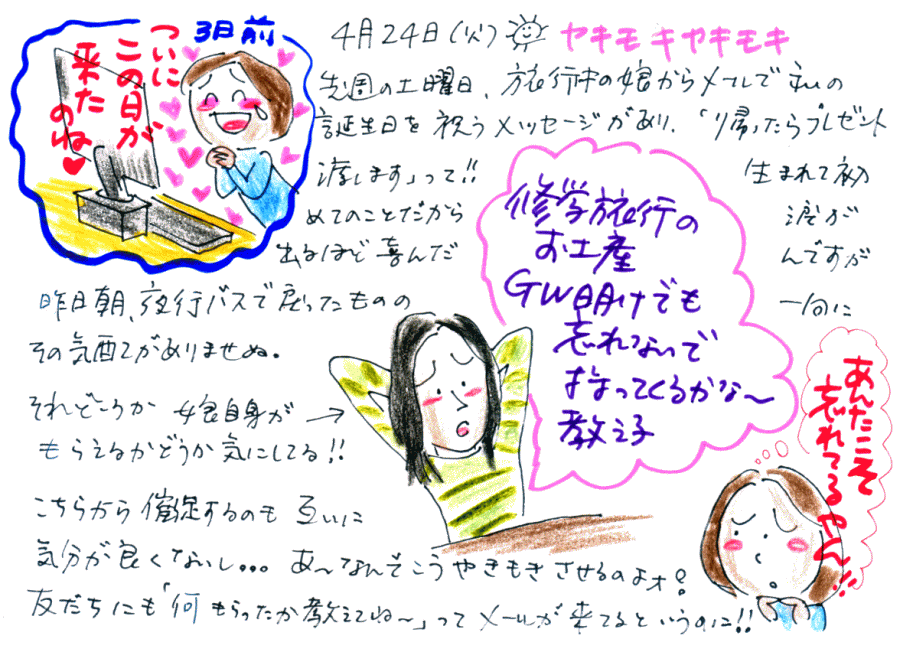 3日前
ついに
この日が
来た
のね♥
4月24日(火) ヤキモキヤキモキ
先週の土曜日、旅行中の娘からメールで私の
誕生日を祝うメッセージがあり、「帰ったらプレゼント
渡します」って!! 生まれて初
めてのことだから 涙が
出るほど喜んだ んですが
昨日朝、夜行バスで戻ったものの 一向に
その気配がありませぬ。
それどころか 娘自身が →
もらえるかどうか気にしてる!!
修学旅行の
お土産
GW明けでも
忘れないで
持ってくるかな〜
教え子
あんたこそ
忘れてるやん!!
こちらから催促するのも 互いに
気分が良くないし... あ〜なんでこうやきもきさせるのよォ?
友だちにも「何もらったか教えてね〜」ってメールが来てるというのに!!